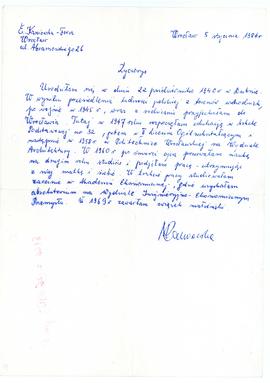 Wrocław 5 stycznia 1986r
Wrocław
ul. Abramowskiego 26
Życiorys
Urodziłam się w dniu 22 października 1940r w
W wyniku przesiedlenia ludności polskiej z terenów wschodnich
po wojnie w 1945r, wraz z rodzicami przyjechałam do
Wrocławia. Tutaj w 1947 roku rozpoczęłam edukację w Szkole
Podstawowej nr 32, potem w I Liceum Ogólnokształcącym i
następnie w 1958r na Politechnice Wrocławskiej na Wydziale
Architektury. W 1960r po śmierci ojca przerwałam naukę
na drugim roku studiów i podjęłam pracę
z niej matkę i siebie. W trakcie pracy studiowałam
zaocznie w Akademii Ekonomicznej, gdzie uzyskałam
absolutorium na Wydziale Inżynieryjno-Ekonomicznym
Przemysłu. W 1969r zawarłam związek małżeński